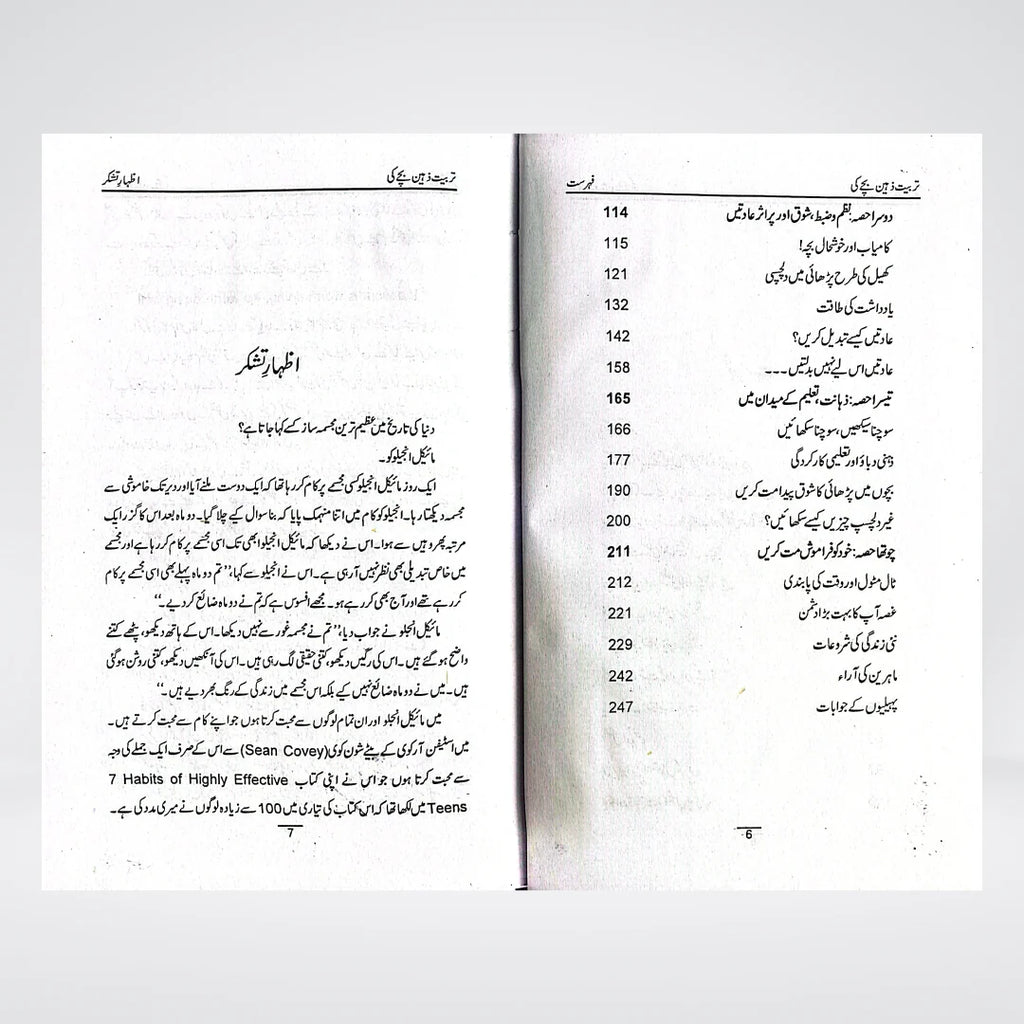 تربیت ذہین بچے کی فہرست
دوسرا حصہ: نظم و ضبط، شوق اور پراثر عادتیں 114
کامیاب اور خوشحال بچہ! 115
کھیل کی طرح پڑھائی میں دلچسپی 121
یادداشت کی طاقت 132
عادتیں کیسے تبدیل کریں؟ 142
عادتیں اس لیے نہیں بدلتیں ۔۔۔ 158
تیسرا حصہ: ذہانت، تعلیم کے میدان میں 165
سوچنا سیکھیں، سوچنا سکھائیں 166
ذہنی دباؤ اور تعلیمی کارکردگی 177
بچوں میں پڑھائی کا شوق پیدا مت کریں 190
غیر دلچسپ چیزیں کیسے سکھائیں؟ 200
چوتھا حصہ: خود کو فراموش مت کریں 211
ٹال مٹول اور وقت کی پابندی 212
غصہ آپ کا بہت بڑا دشمن 221
نئی زندگی کی شروعات 229
ماہرین کی آراء 242
پہیلیوں کے جوابات 247
6
تربیت ذہین بچے کی اظہارِ تشکر
اظہارِ تشکر
دنیا کی تاریخ میں عظیم ترین مجسمہ ساز کسے کہا جاتا ہے؟
مائیکل انجیلو کو۔
ایک روز مائیکل انجیلو کسی مجسمے پر کام کر رہا تھا کہ ایک دوست ملنے آیا اور دیر تک خاموشی سے
مجسمہ دیکھتا رہا۔ انجیلو کو کام میں اتنا منہمک پایا کہ بنا سوال کیے چلا گیا۔ دو ماہ بعد اس کا گزر ایک
مرتبہ پھر وہیں سے ہوا۔ اس نے دیکھا کہ مائیکل انجیلو ابھی تک اسی مجسمے پر کام کر رہا ہے اور مجسمے
میں خاص تبدیلی بھی نظر نہیں آ رہی ہے۔ اس نے انجیلو سے کہا، ”تم دو ماہ پہلے بھی اسی مجسمے پر کام
کر رہے تھے اور آج بھی کر رہے ہو۔ مجھے افسوس ہے کہ تم نے دو ماہ ضائع کر دیے۔“
مائیکل انجلو نے جواب دیا، ”تم نے مجسمہ غور سے نہیں دیکھا۔ اس کے ہاتھ دیکھو، پٹھے کتنے
واضح ہو گئے ہیں۔ اس کی رگیں دیکھو، کتنی حقیقی لگ رہی ہیں۔ اس کی آنکھیں دیکھو، کتنی روشن ہو گئی
ہیں۔ میں نے دو ماہ ضائع نہیں کیے بلکہ اس مجسمے میں زندگی کے رنگ بھر دیے ہیں۔“
میں مائیکل انجلو اور ان تمام لوگوں سے محبت کرتا ہوں جو اپنے کام سے محبت کرتے ہیں۔
میں اسٹیفن آر کوی کے بیٹے شون کوی (Sean Covey) سے اس کے صرف ایک جملے کی وجہ
سے محبت کرتا ہوں جو اس نے اپنی کتاب 7 Habits of Highly Effective
Teens میں لکھا تھا کہ اس کتاب کی تیاری میں 100 سے زیادہ لوگوں نے میری مدد کی ہے۔
7